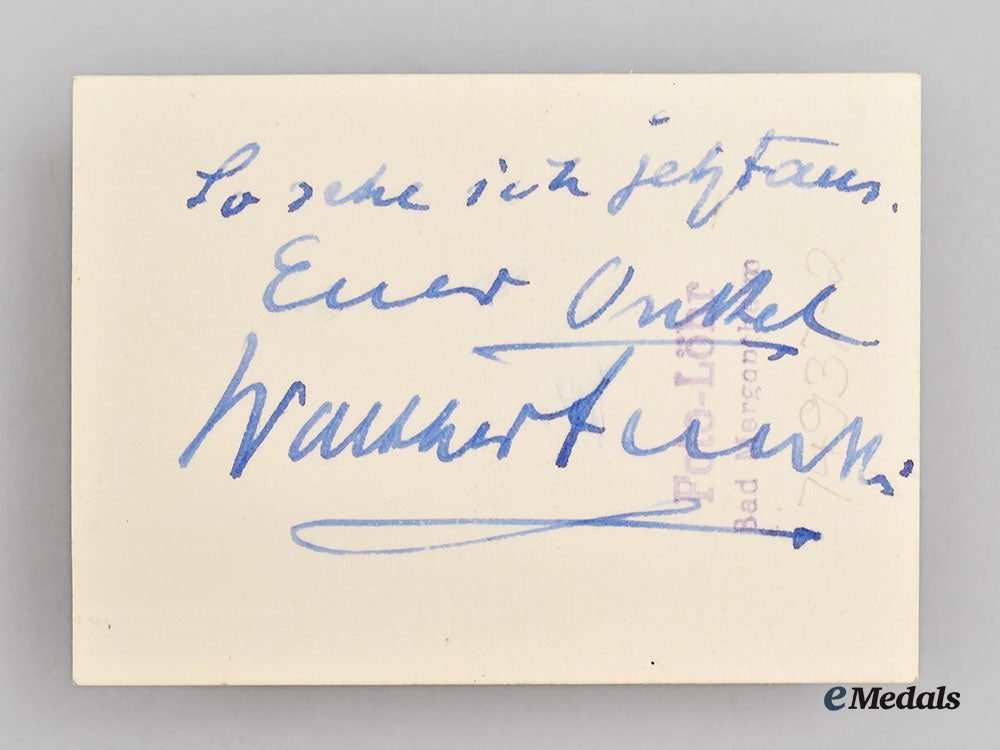 So sehe ich jetzt aus.
Euer Onkel
Walther Funk.
Foto-Löhr
Bad Mergentheim
eMedals